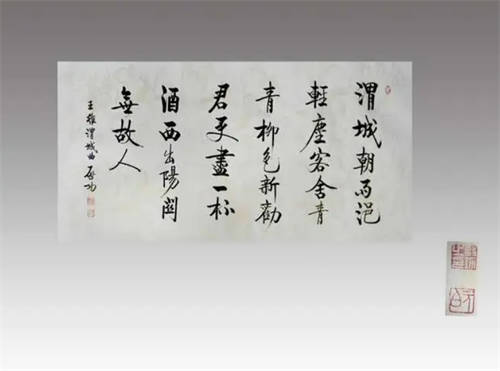 渭城朝雨浥
輕塵客舍青
青柳色新勸
君更盡一杯
酒西出陽關
無故人
王維渭城曲 啓功